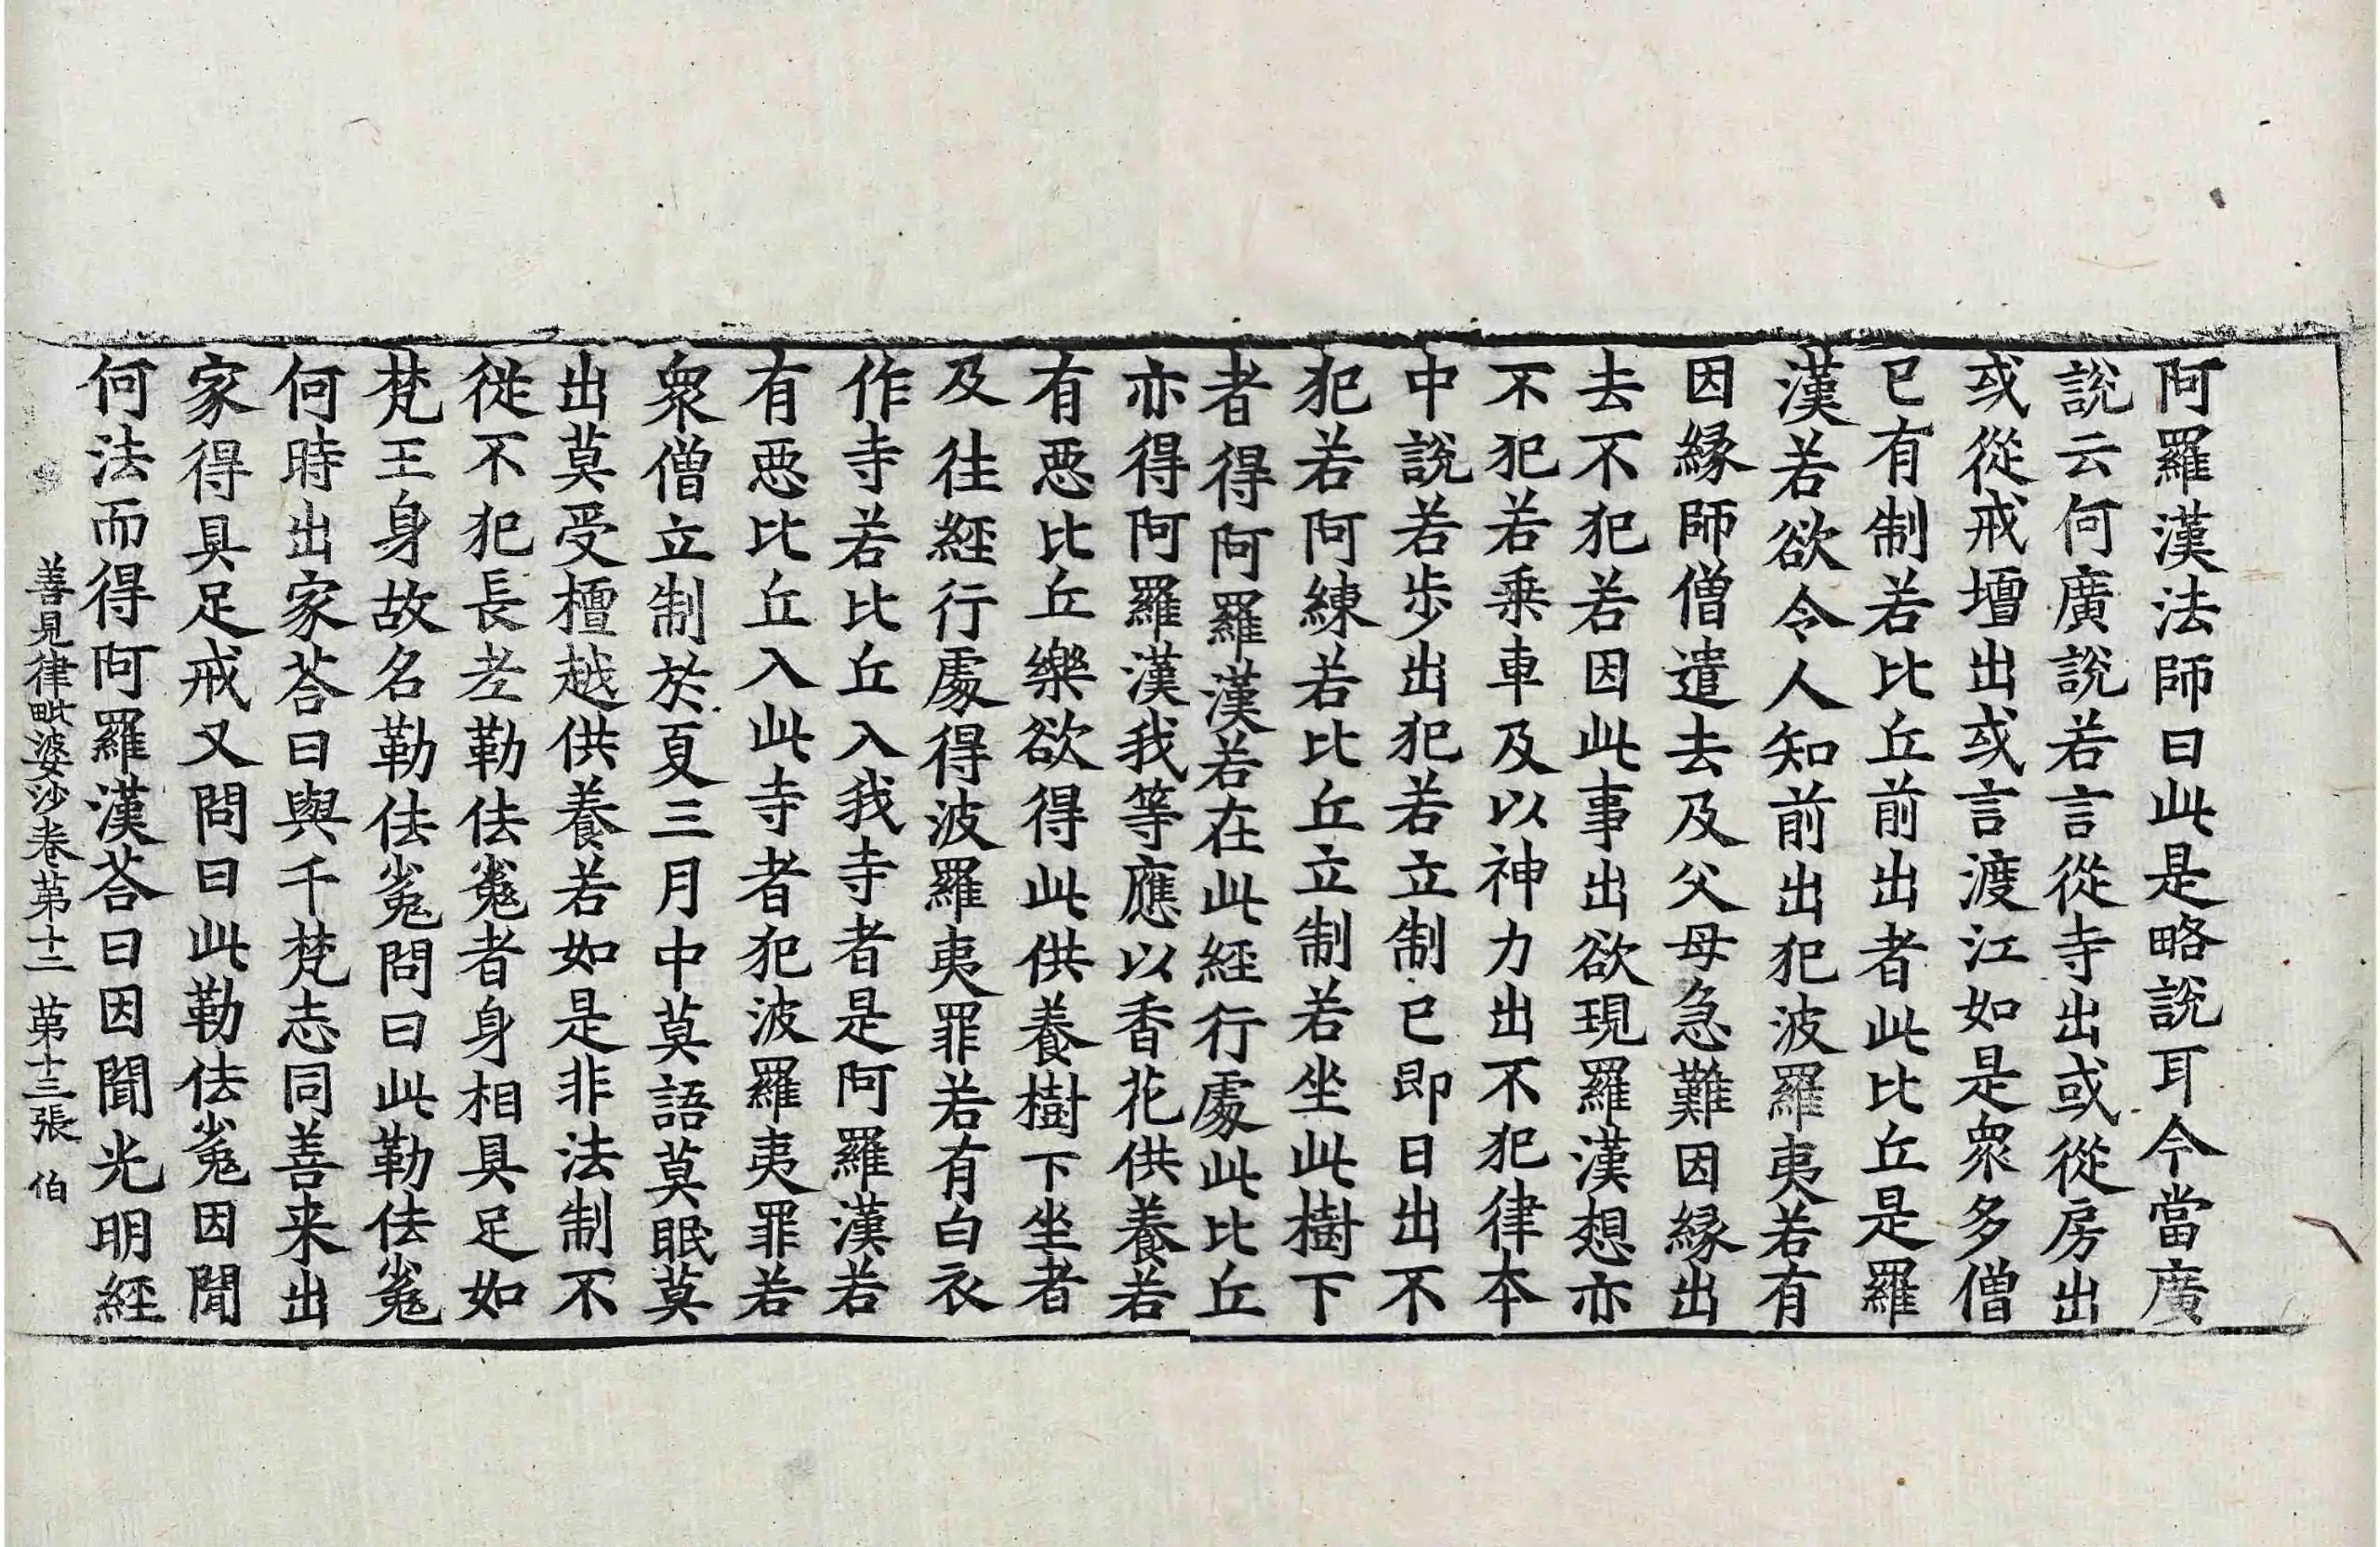 阿羅漢法師曰此是略說耳今當廣
說云何廣說若言從寺出或從房出
或從戒壇出或言渡江如是衆多僧
已有制若比丘前出者此比丘是羅
漢若欲令人知前出犯波羅夷若有
因縁師僧遣去及父母急難因縁出
去不犯若因此事出欲現羅漢想亦
不犯若乗車及以神力出不犯律本
中說若步出犯若立制已即日出不
犯若阿練若比丘立制若坐此樹下
者得阿羅漢若在此經行處此比丘
亦得阿羅漢我等應以香花供養若
有惡比丘樂欲得此供養樹下坐者
及往經行處得波羅夷罪若有白衣
作寺若比丘入我寺者是阿羅漢若
有惡比丘入此寺者犯波羅夷罪若
衆僧立制於夏三月中莫語莫眠莫
出莫受檀越供養若如是非法制不
從不犯長老勒佉㝹者身相具足如
梵王身故名勒佉㝹問曰此勒佉㝹
何時出家荅曰與千梵志同善来出
家得具足戒又問曰此勒佉㝹因聞
何法而得阿羅漢荅曰因聞光明經
善見律毗婆沙卷第十二 第十三張 伯